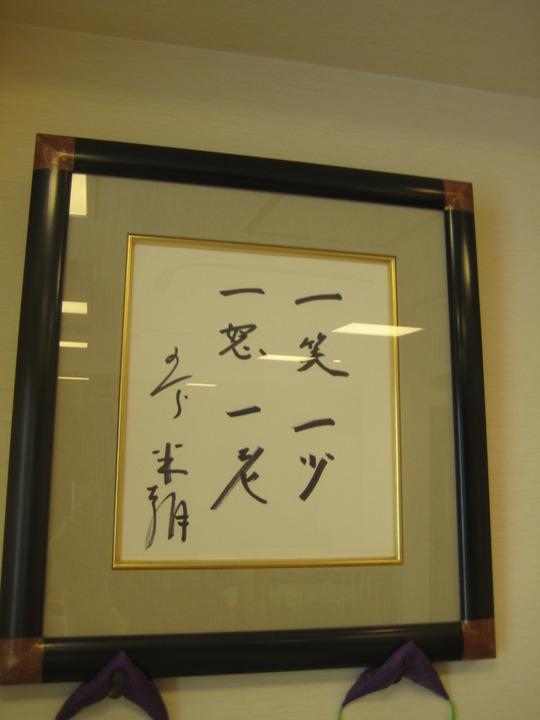 一笑一少
一怒一老
米朝